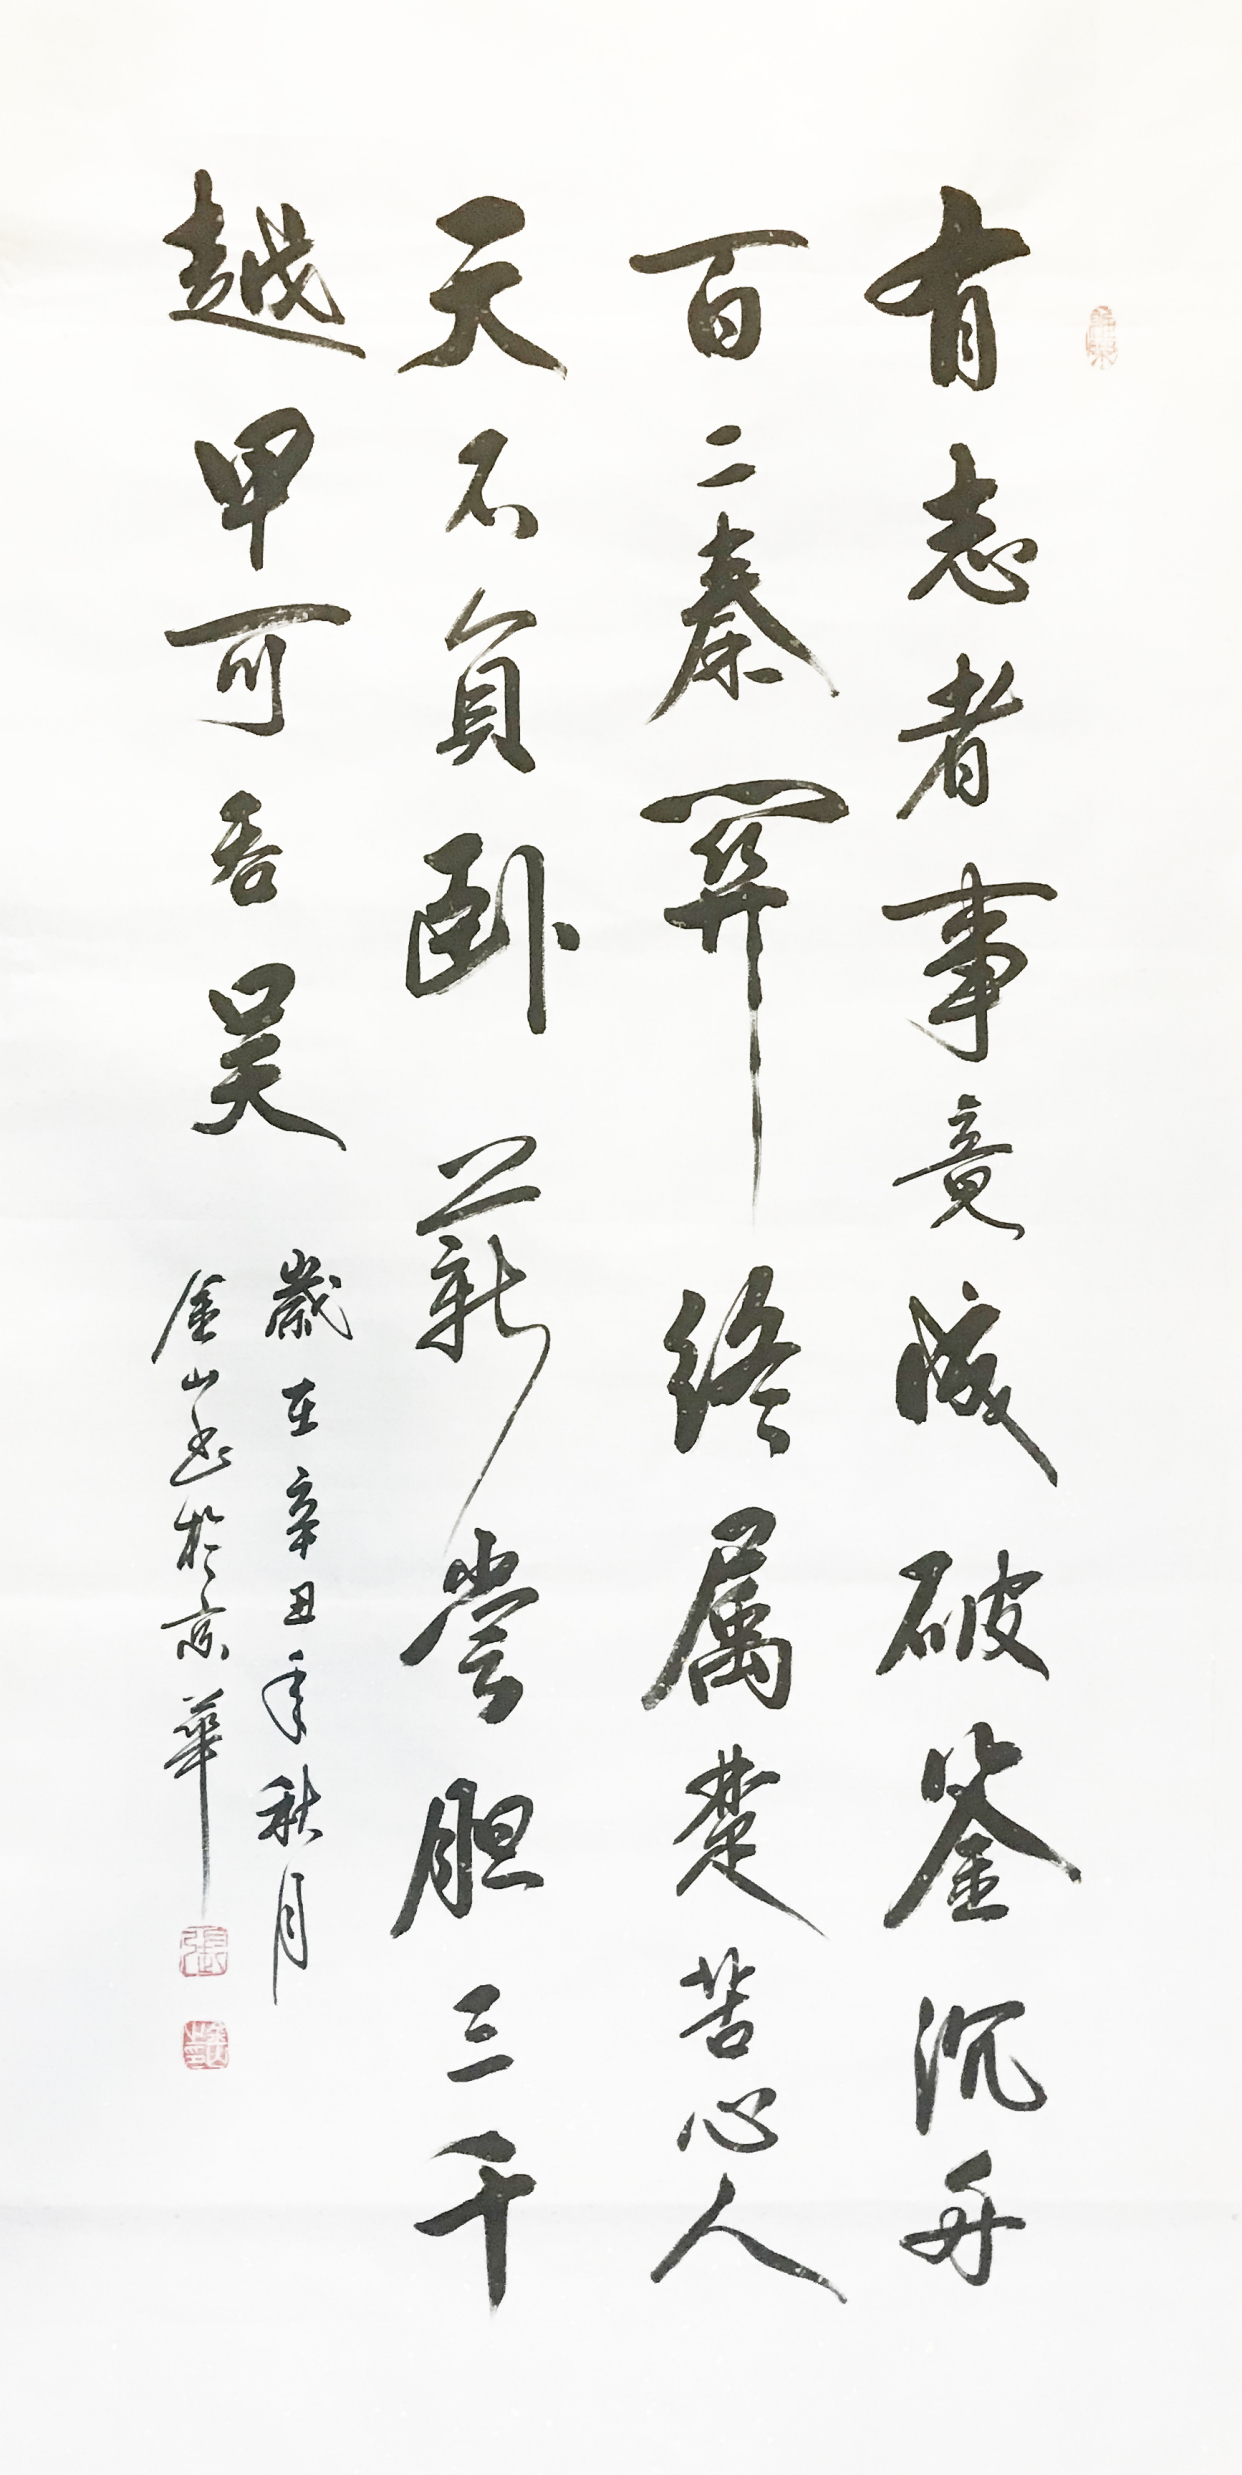 有志者事竟成破釜沉舟
百二秦關终属楚苦心人
天不負卧薪尝胆三千
越甲可吞吴
歲在辛丑年秋月
金山书於京華
張